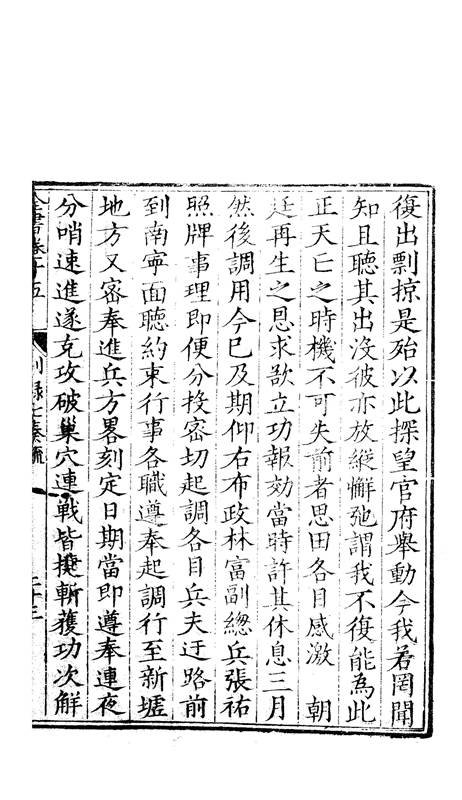 復出剽掠是殆以此探望官府舉動今我若罔聞
知且聽其出沒彼亦放縱懈弛謂我不復能為此
正天亡之時機不可失前者思田各目感激　朝
廷再生之恩求欲立功報効當時許其休息三月
然後調用今已及期仰右布政林富副總兵張祐
照牌事理即便分投密切起調各目兵夫迂路前
到南寧面聽約束行事各職遵奉起調行至新墟
地方又密奉進兵方畧刻定日期當即遵奉連夜
分哨速進遂克攻破巢穴連戰皆捷斬獲功次解
全書卷十五　別錄七奏疏　二十三